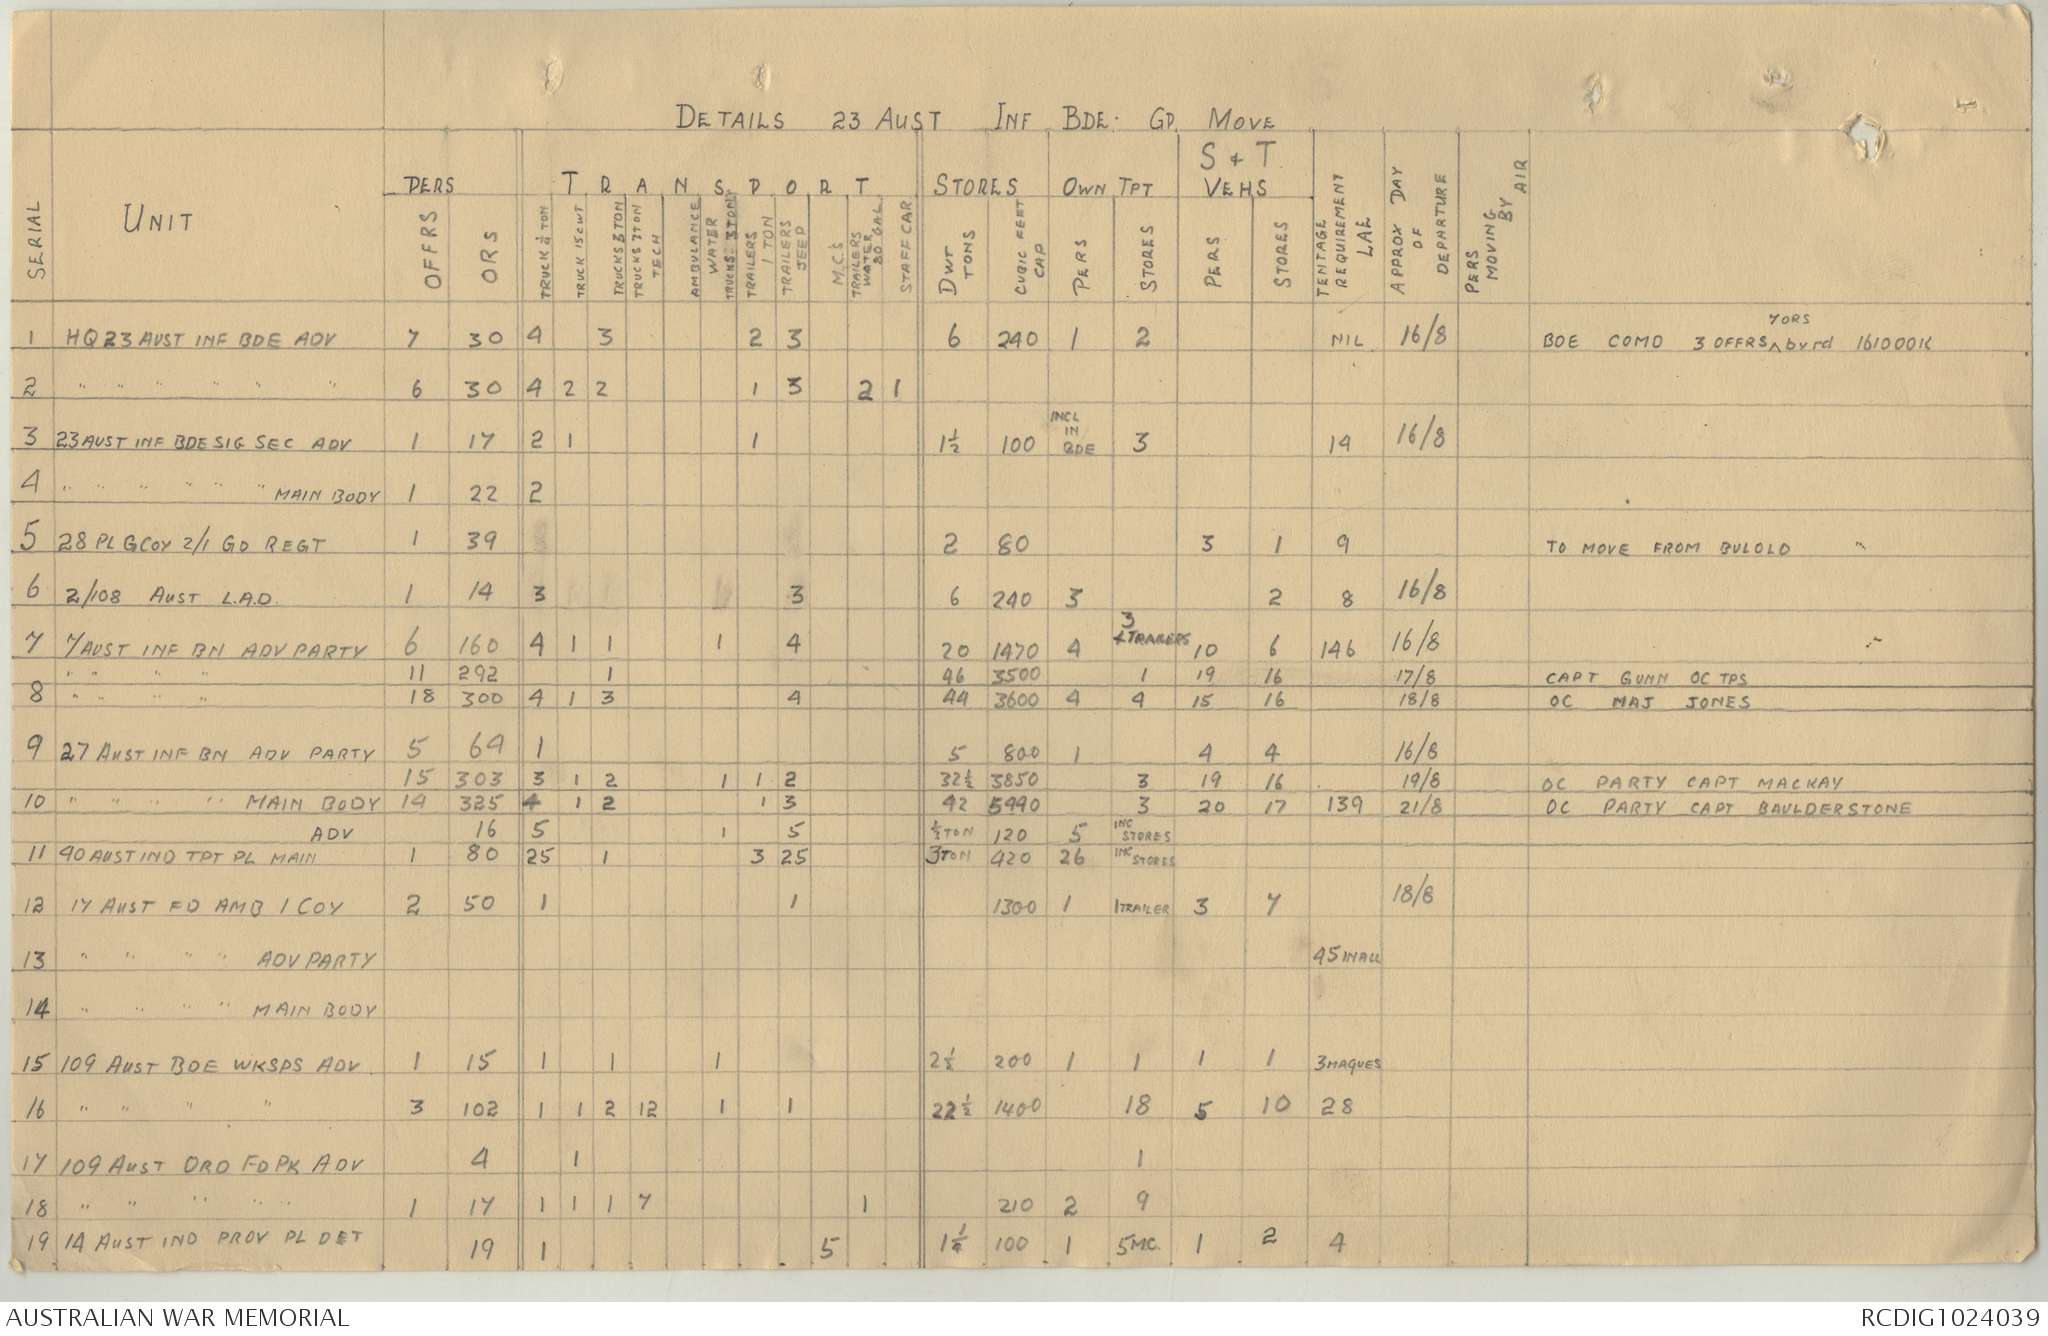 DETAILS 23 AUST INF BDE. GP. MOVE
SERIAL
UNIT
PERS
OFFRS
ORS
TRANSPORT
TRUCK ½ TON
TRUCK 15 CWT
TRUCKS 3 TON
TRUCKS 3 TON TECH
AMBULANCE
WATER TRUCKS 3 TON
TRAILERS 1 TON
TRAILERS JEEP
M.C.'s
TRAILERS WATER 80 GAL.
STAFF CAR
STORES
DWT TONS
CUBIC FEET CAP
OWN TPT
PERS
STORES
S & T VEHS
PERS
STORES
TENTAGE REQUIREMENT LAE
APPROX DAY OF DEPARTURE
PERS MOVING BY AIR
1 HQ 23 AUST INF BDE ADV 7 30 4 3 2 3 6 240 1 2 NIL 16/8 BDE COMD 3 OFFRS 7 ORS by rd 161000K
2 " " " " " " 6 30 4 2 2 1 3 2 1
3 23 AUST INF BDE SIG SEC ADV 1 17 2 1 1 1½ 100 INCL IN BDE 3 14 16/8
4 " " " " " " MAIN BODY 1 22 2
5 28 PL G COY 2/1 GD REGT 1 39 2 80 3 1 9 TO MOVE FROM BULOLO "
6 2/108 AUST L.A.D. 1 14 3 3 6 240 3 2 8 16/8
7 7 AUST INF BN ADV PARTY 6 160 4 1 1 1 4 20 1470 4 3 4 TRAILERS 10 6 146 16/8
" " " " 11 292 1 46 3500 1 19 16 17/8 CAPT GUNN OC TPS
8 " " " " 18 300 4 1 3 4 44 3600 4 4 15 16 18/8 OC MAJ JONES
9 27 AUST INF BN ADV PARTY 5 64 1 5 800 1 4 4 16/8
15 303 3 1 2 1 1 2 32½ 3850 3 19 16 19/8 OC PARTY CAPT MACKAY
10 " " " " MAIN BODY 14 325 4 1 2 1 3 42 5440 3 20 17 139 21/8 OC PARTY CAPT BAULDERSTONE
ADV 16 5 1 5 ½ TON 120 5 INC STORES
11 40 AUST IND TPT PL MAIN 1 80 25 1 3 25 3 TON 420 26 INC STORES
12 17 AUST FD AMB 1 COY 2 50 1 1 1300 1 1 TRAILER 3 7 18/8
13 " " " " ADV PARTY 45 IN ALL
14 " " " " MAIN BODY
15 109 AUST BDE WKSPS ADV 1 15 1 1 1 2½ 200 1 1 1 1 3 MAQUES
16 " " " " 3 102 1 1 2 12 1 1 22½ 1400 18 5 10 28
17 109 AUST ORD FD PK ADV 4 1 1
18 " " " " " 1 17 1 1 1 7 1 210 2 9
19 14 AUST IND PROV PL DET 19 1 5 1¼ 100 1 5 MC. 1 2 4
AUSTRALIAN WAR MEMORIAL
RCDIG1024039